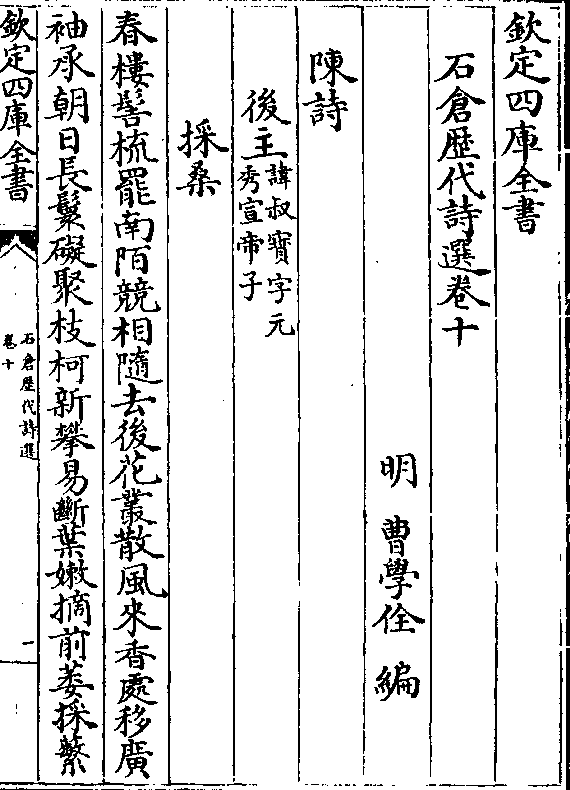 欽定四庫全書
石倉歷代詩選卷十
明 曹學佺 編
陳詩
後主諱叔寶字元秀宣帝子
採桑
春樓髻梳罷南陌競相隨去後花叢散風來香處移廣
袖承朝日長鬟礙聚枝柯新攀易斷葉嫩摘前萎採繁
欽定四庫全書
石倉歷代詩選
卷十
一